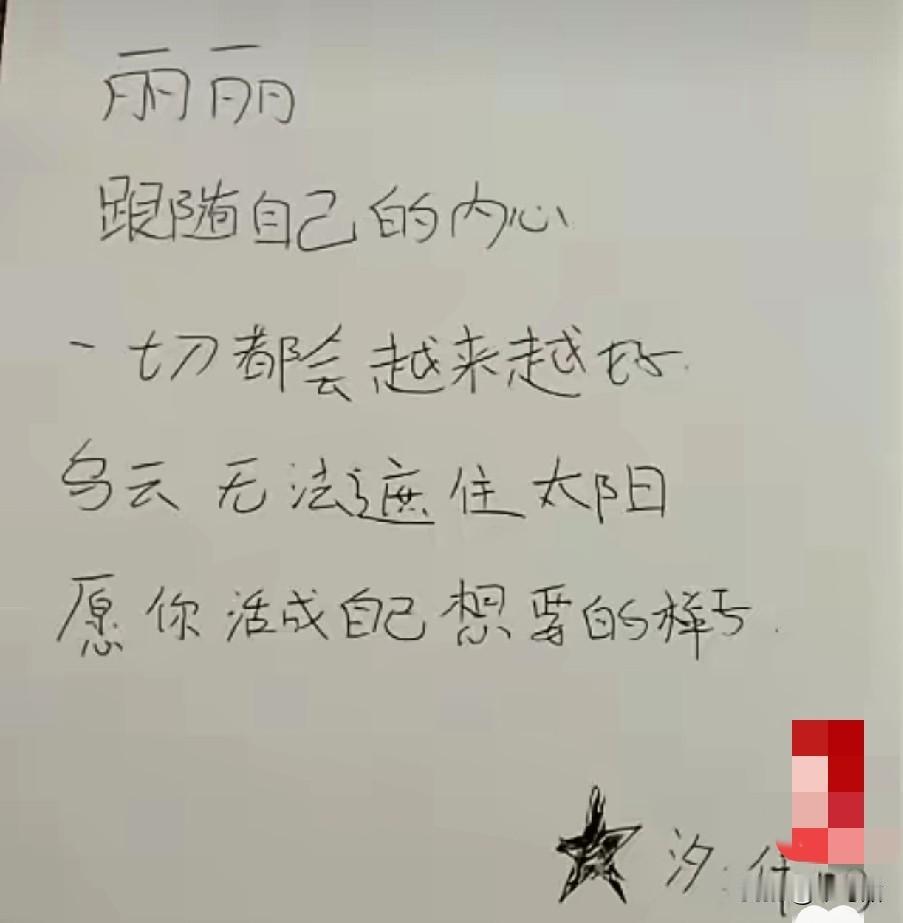 丽丽
跟随自己的内心
一切都会越来越好.
乌云无法遮住太阳
愿你活成自己想要的样子.
汐